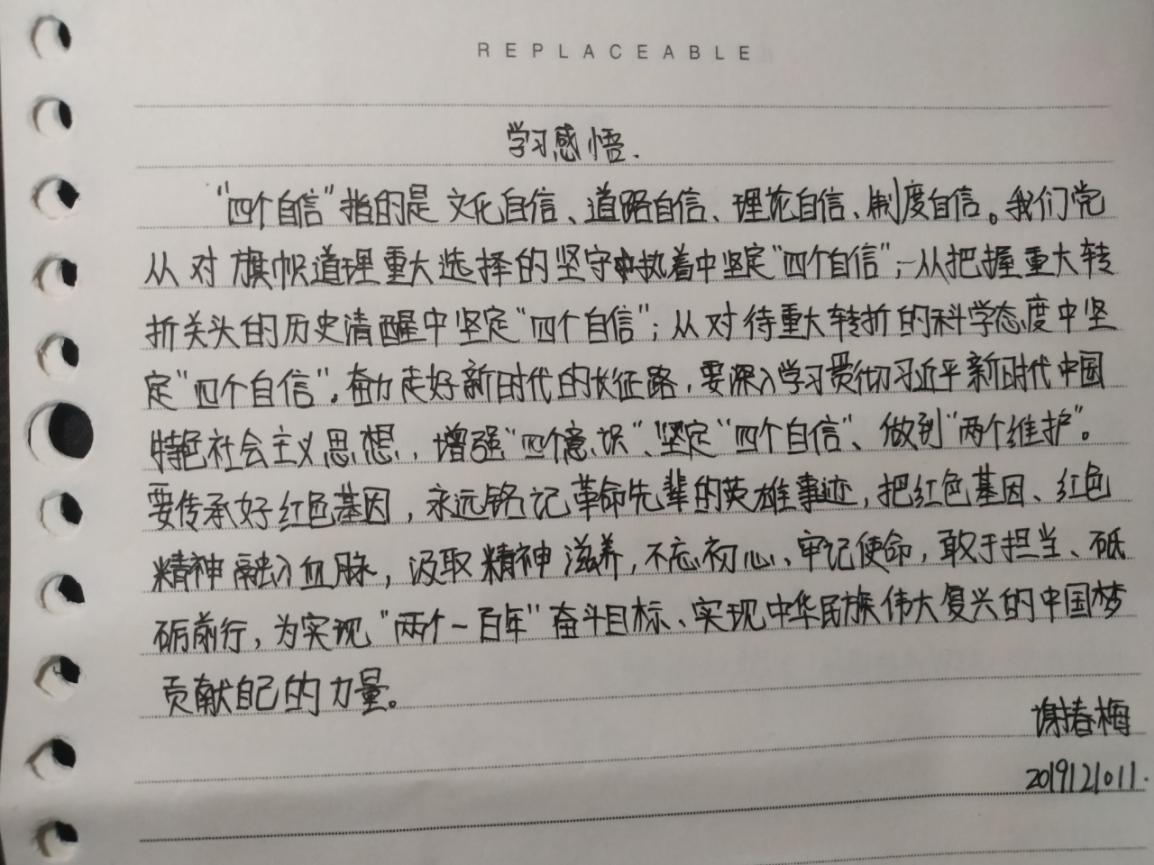 REPLACEABLE
学习感悟.
“四个自信”指的是文化自信、道路自信、理论自信、制度自信。我们党
从对旗帜道理重大选择的坚守执着中坚定“四个自信”;从把握重大转
折关头的历史清醒中坚定“四个自信”;从对待重大转折的科学态度中坚
定“四个自信”。奋力走好新时代的长征路,要深入学习贯彻习近平新时代中国
特色社会主义思想,增强“四个意识”、坚定“四个自信”、做到“两个维护”。
要传承好红色基因,永远铭记革命先辈的英雄事迹,把红色基因、红色
精神融入血脉,汲取精神滋养,不忘初心、牢记使命,敢于担当、砥
砺前行,为实现“两个一百年”奋斗目标、实现中华民族伟大复兴的中国梦
贡献自己的力量。
谢春梅
2019121011.